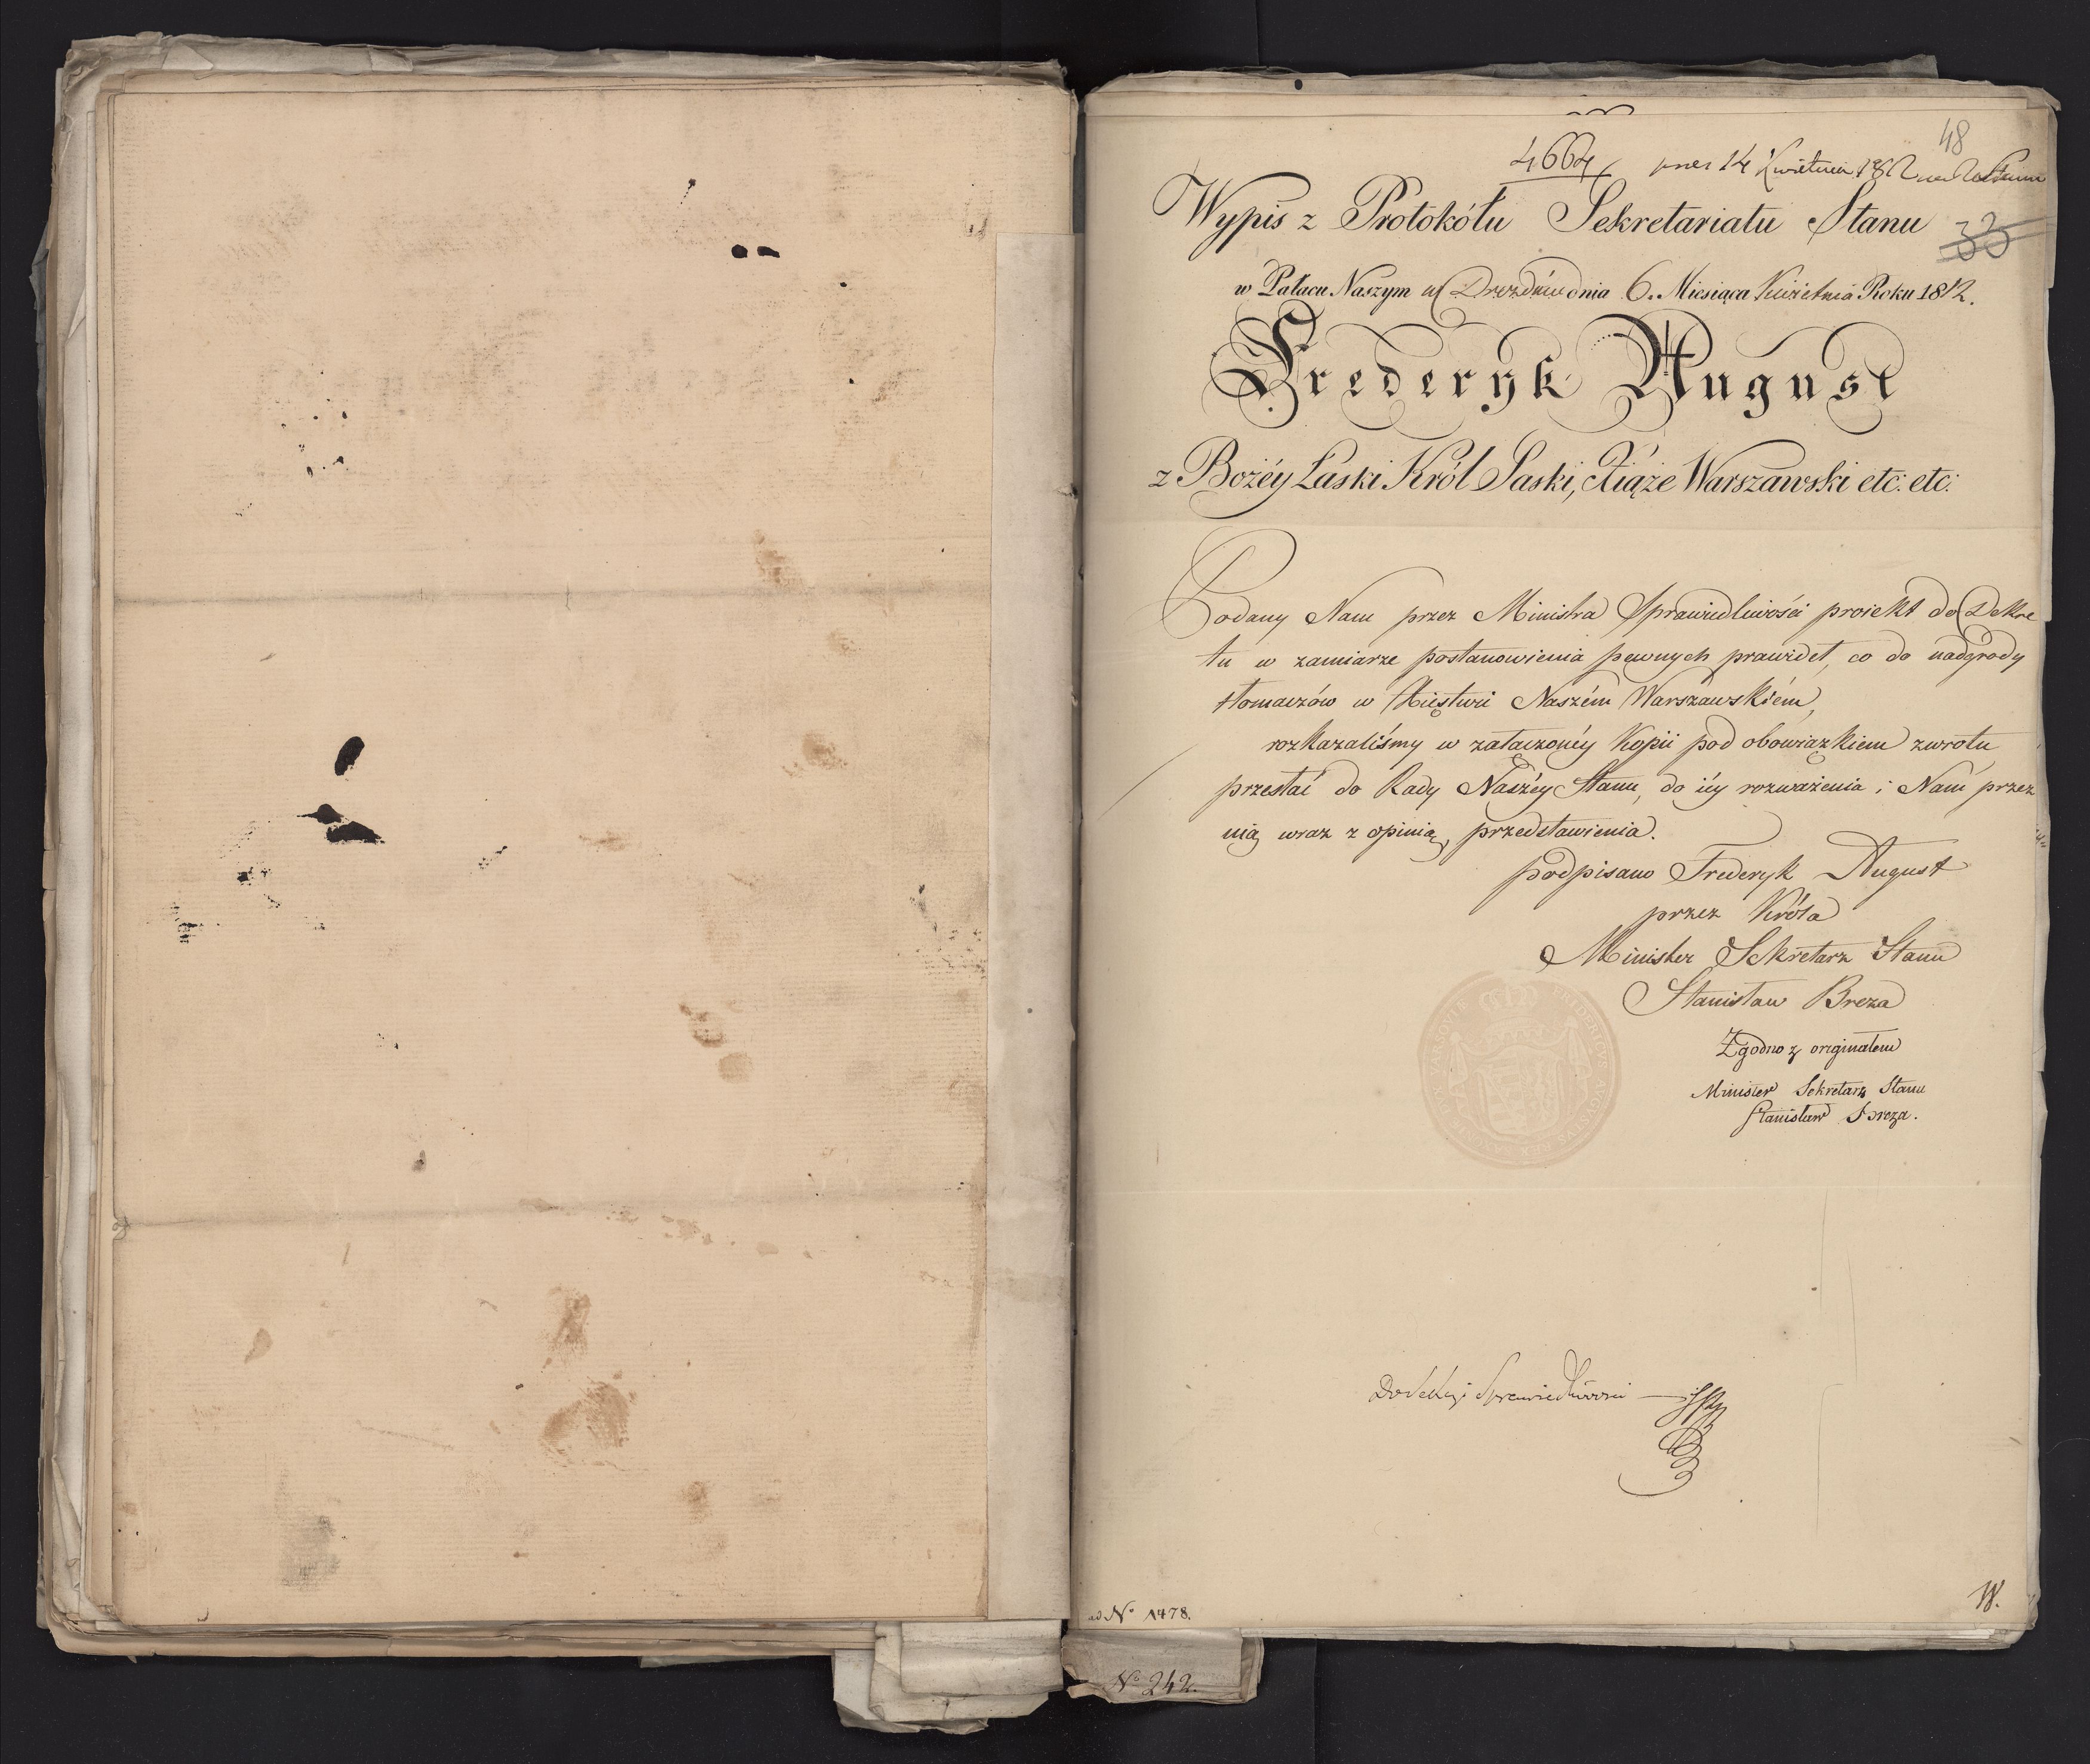 48
4664 pres 14 Kwietnia 1812
Wypis z Protokółu Sekretariatu Stanu
33
w Pałacu Naszym w Dreźdnie dnia 6. Miesiąca Kwietnia Roku 1812.
Frederyk August
z Bożéy Łaski Król Saski, Xiąże Warszawski etc: etc:
Podany Nam przez Ministra Sprawiedliwości proiekt do Dekre
tu w zamiarze postanowienia pewnych prawideł, co do nadgrody
tłomaczów w Xięstwie Naszém Warszawskiém,
rozkazaliśmy w załączonéy Kopii pod obowiązkiem zwrotu
przesłać do Rady Naszéy Stanu, do iéy rozważenia i Nam przez
nią wraz z opinią, przedstawienia.
podpisano Frederyk August
przez Króla
Minister Sekretarz Stanu
Stanisław Breza
Zgodno z originałem
Minister Sekretarz Stanu
Stanisław Breza.
Do Sekcyi Sprawiedliwości
ad No 1478.
W.
No 242.